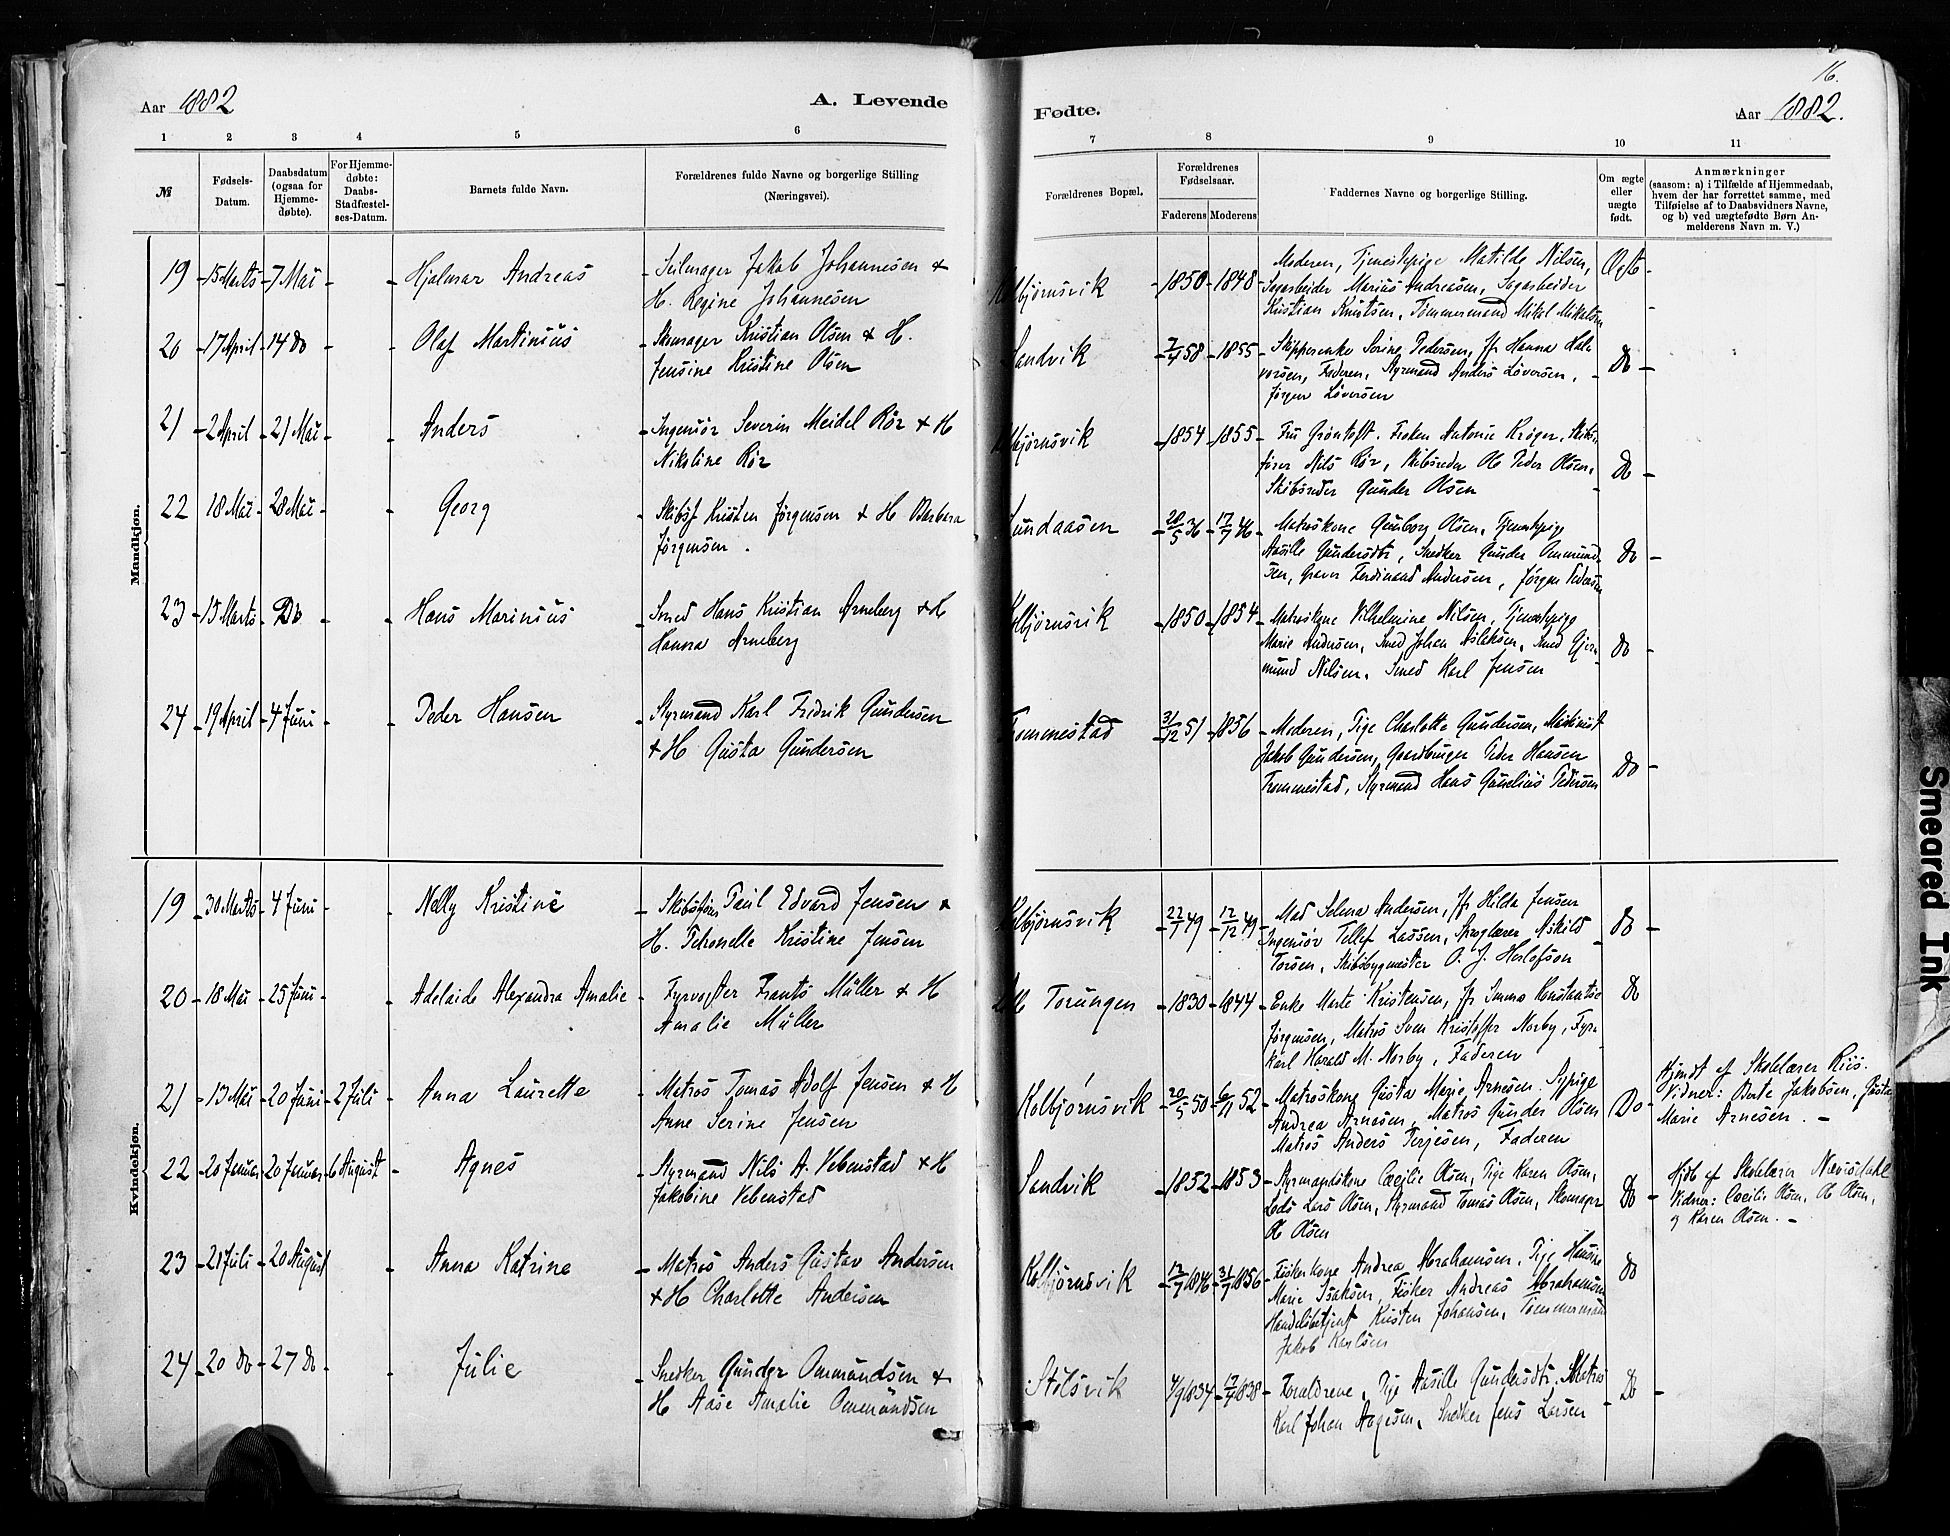 16.
Aar 1882
A. Levende
Fødte.
Aar 1882.
1 2 3 4 5 6 7 8 9 10 11
№
Fødsels-
Datum.
Daabsdatum
(ogsaa for
Hjemme-
døbte).
For Hjemme-
døbte:
Daabs-
Stadfæstel-
ses-Datum.
Barnets fulde Navn.
Forældrenes fulde Navne og borgerlige Stilling
(Næringsvei).
Forældrenes Bopæl.
Forældrenes
Fødselsaar.
Faderens Moderens
Faddernes Navne og borgerlige Stilling.
Om ægte
eller
uægte
født.
Anmærkninger
(saasom: a) i Tilfælde af Hjemmedaab,
hvem der har forrettet samme, med
Tilføielse af to Daabsvidners Navne,
og b) ved uægtefødte Børn An-
melderens Navn m. V.)
Mandkjøn.
19 15 Marts 7 Mai Hjalmar Andreas
Seilmager Jakob Johannesen +
H. Regine Johannesen
Kolbjørnsvik 1850 1848
Moderen, Tjenestepige Matilde Nilsen,
Sagarbeider Marius Andreasen, Sagarbeider
Kristian Knutsen, Tømmermand Mikl. Mikalsen
Ægte
20 17 April 14 Do Olaf Martinius
Skomager Kristian Olsen + H.
Jensine Kristine Olsen
Sandvik 7/4 58 1855
Skipperenke Serine Pedersen, Jfr Hanna Hal-
vorsen, Faderen, Styrmand Anders Løversen,
Jørgen Løversen
Do
21 2 April 21 Mai Anders
Ingeniør Severin Meidel Rør + H
Nikoline Rør
Kolbjørnsvik 1854 1855
Fru Grøntoft. Frøken Antonie Krøger, Skibs-
fører Nils Rør, Skibsreder Ole Peder Olsen,
Skibsreder Gunder Olsen
Do
22 18 Mai 28 Mai Georg
Skibsf Kristen Jørgensen + H Barbara
Jørgensen.
Sundaasen 20/5 36 17/7 46
Matroskone Gunborg Olsen, Tjenestepige
Aasille Gundersdtr, Snedker Gunder Ommund-
sen, Graver Ferdinand Andersen, Jørgen Pedersen
Do
23 15 Marts Do Hans Marinius
Smed Hans Kristian Arneberg + H
Hanna Arneberg
Kolbjørnsvik 1850 1854
Matroskone Vilhelmine Nilsen, Tjenestepige
Marie Andersen, Smed Johan Aslaksen, Smed Gjer-
mund Nilsen, Smed Karl Jensen
Do
24 19 April 4 Juni Peder Hansen
Styrmand Karl Fredrik Gundersen
+ H Gusta Gundersen
Trommestad 31/12 51 1856
Moderen, Pige Charlotte Gundersen, Maskinist
Jakob Gundersen, Gaardbruger Peder Hansen
Trommestad, Styrmand Hans Gunelius Pedersen
Do
Kvindekjøn.
19 30 Marts 4 Juni Nelly Kristine
Skibsfører Paul Edvard Jensen +
H. Petronelle Kristine Jensen
Kolbjørnsvik 22/1 49 12/12 49
Mad Selma Andersen, Jfr Hilda Jensen
Ingeniør Tellef Lassen, Sproglærer Askild
Torsen, Skibsbygmester O. J. Herlofson
Do
20 18 Mai 25 Juni Adelaide Alexandra Amalie
Fyrvogter Frants Müller + H
Amalie Müller
Torungen 1830 1844
Enke Marte Kristensen, Jfr Emma Konstantse
Jørgensen, Matros Sven Kristoffer Norby, Fyr-
karl Harald M. Norby, Faderen
Do
21 13 Mai 20 Juni 2 Juli Anna Laurette
Matros Tomas Adolf Jensen + H
Anne Serine Jensen
Kolbjørnsvik 20/5 50 6/11 52
Matroskone Gusta Marie Arnesen. Sypige
Andrea Arnesen, Matros Gunder Olsen
Matros Anders Terjesen, Faderen
Do
Hjmdt af Skolelærer Riis.
Vidner: Berte Jakobsen, Gusta
Marie Arnesen. —
22 20 Januar 20 Januar 6 August Agnes
Styrmand Nils A. Vebenstad + H
Jakobine Vebenstad
Sandvik 1852 1853
Styrmandskone Cæcilie Olsen, Pige Karen Olsen,
Lods Lars Olsen, Styrmand Tomas Olsen, Skomager
Ole Olsen
Do
Hjdt af Skolelærer Nævisdahl
Vidner: Cæcilie Olsen, Ole Olsen,
og Karen Olsen. —
23 21 Juli 20 August Anna Katrine
Matros Anders Gustav Andersen
+ H Charlotte Andersen
Kolbjørnsvik 12/7 1846 31/7 1856
Fiskerkone Andrea Abrahamsen, Pige Hansine
Marie Isaksen, Fisker Andreas Abrahamsen
Handelsbetjent Kristen Johansen, Tømmermand
Jakob Karlsen
Do
24 20 Do 27 Do Julie
Snedker Gunder Ommundsen +
H Aase Amalie Ommundsen
Stølsvik 4/9 1834 17/4 1838
Forældrene, Pige Aasille Gundersdtr, Matros
Karl Johan Aagesen, Snedker Jens Larsen
Do
Smeared Ink